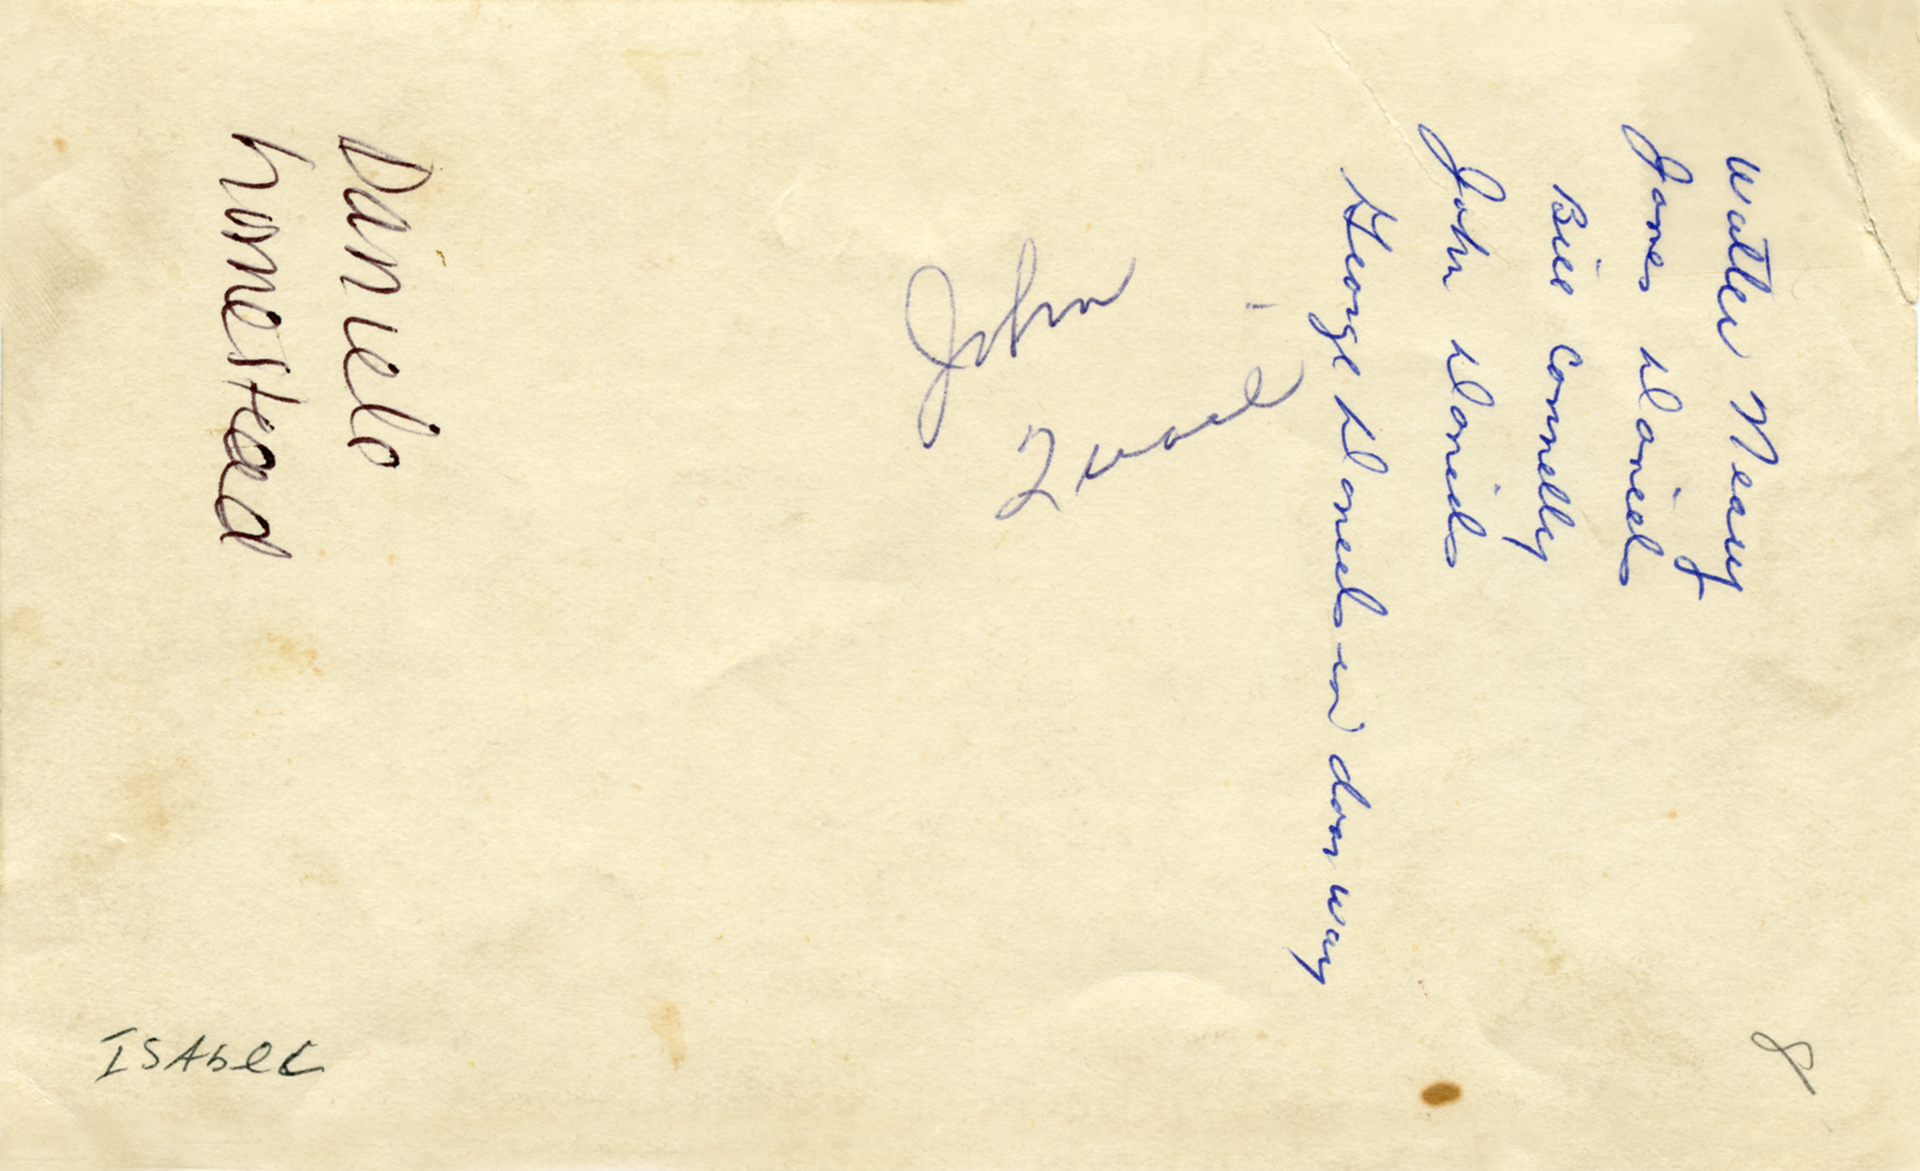 Walter Neary
James Daniels
Bill Connelly
John Daniels
George Daniels in door way
John
Daniels
homestead
ISAbel
8